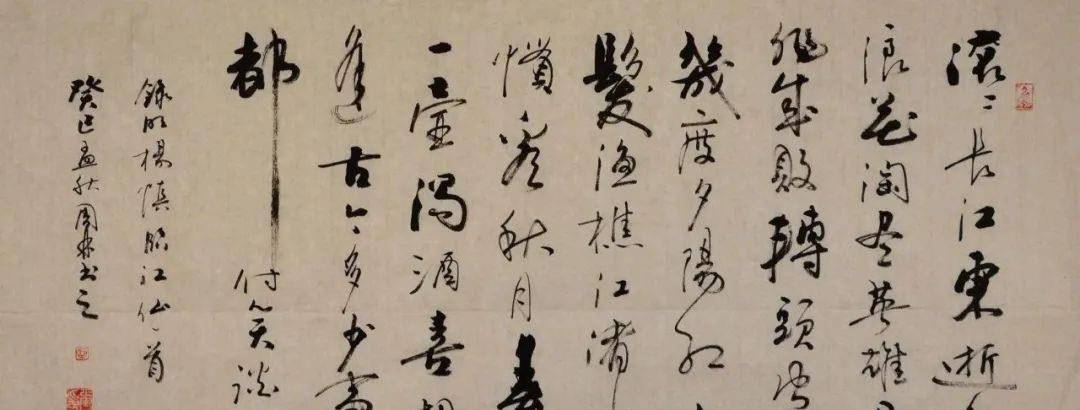 滚〻长江東逝
浪花淘尽英雄
非成败轉頭空
幾度夕陽红
髮渔樵江渚
惯看秋月春
一壶濁酒喜相
逢古今多少事
都付笑谈
録明楊慎临江仙一首
癸巳孟秋周书之